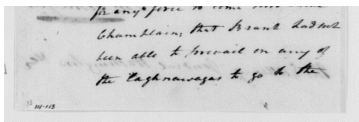 for any force to come
Champlain; that Brant had not
been able to prevail on any of
the Caghnawagas to go to the